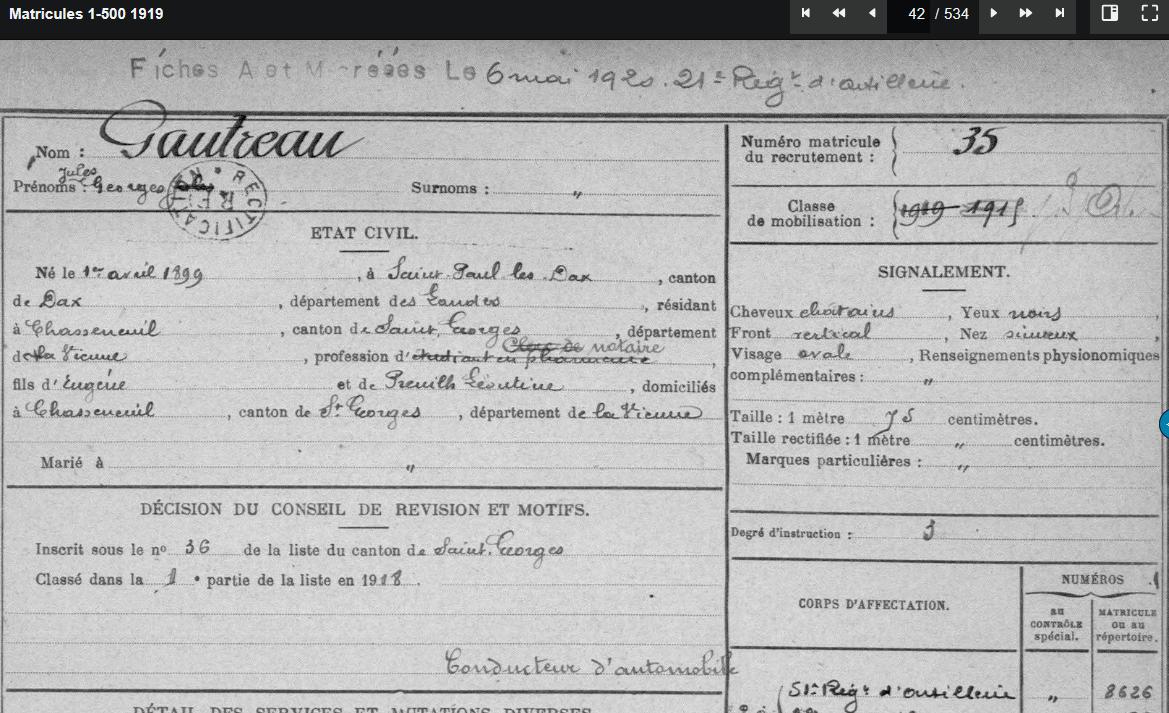 Matricules 1-500 1919
42 / 534
Fiches A et M créées Le 6 mai 1920. 21e Regt d'artillerie.
Nom : Gautreau
Jules
Prénoms : Georges
Surnoms : "
RECTIFICATION
ETAT CIVIL.
Né le 1er avril 1899, à Saint Paul les Dax, canton
de Dax, département des Landes, résidant
à Chasseneuil, canton de Saint Georges, département
Clerc de notaire
de la Vienne, profession d'étudiant en pharmacie,
fils d'Eugène et de Preuilh Léontine, domiciliés
à Chasseneuil, canton de St Georges, département de la Vienne
Marié à "
DÉCISION DU CONSEIL DE REVISION ET MOTIFS.
Inscrit sous le no 36 de la liste du canton de Saint. Georges
Classé dans la 1 e partie de la liste en 1918.
Conducteur d'automobile
DÉTAIL DES SERVICES ET MUTATIONS DIVERSES
Numéro matricule
du recrutement : 35
Classe
de mobilisation : 1919
SIGNALEMENT.
Cheveux chatains, Yeux noirs,
Front vertical, Nez sinueux,
Visage ovale, Renseignements physionomiques
complémentaires : "
Taille : 1 mètre 75 centimètres.
Taille rectifiée : 1 mètre " centimètres.
Marques particulières : "
Degré d'instruction : 3
CORPS D'AFFECTATION.
NUMÉROS
au
CONTRÔLE
spécial.
MATRICULE
ou au
répertoire.
51e Regt d'artillerie " 8626